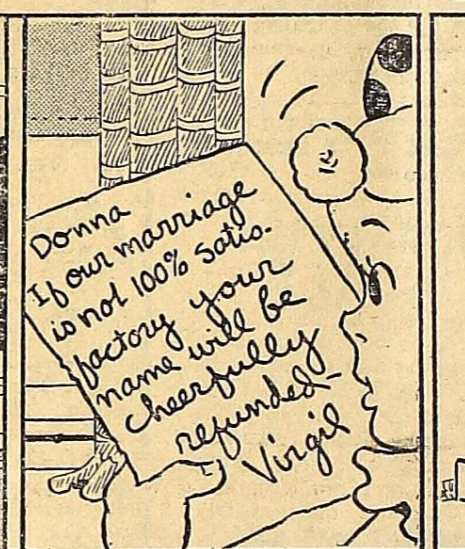 Donna
If our marriage
is not 100% satis-
factory your
name will be
cheerfully
refunded-
Virgil